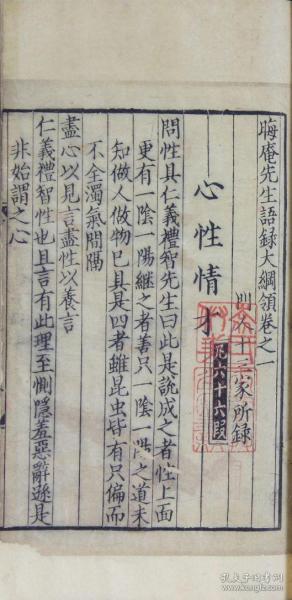 晦庵先生語録大綱領卷之一
十三家所録
心性情才
凡六十六段
問性具仁義禮智先生曰此是說成之者性上面
更有一陰一陽繼之者善只一陰一陽之道未
知做人做物已具是四者雖昆虫皆有只偏而
不全濁氣間隔
盡心以見言盡性以養言
仁義禮智性也且言有此理至惻隠羞惡辭遜是
非始謂之心
孔夫子旧书网
www.kongfz.com